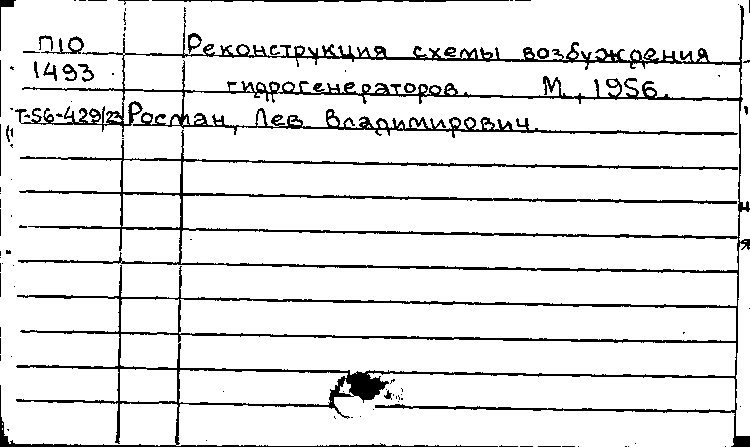 П10 Реконструкция схемы возбуждения
1493 гидрогенераторов. М., 1956.
Т-56-429/23 Росман, Лев Владимирович.